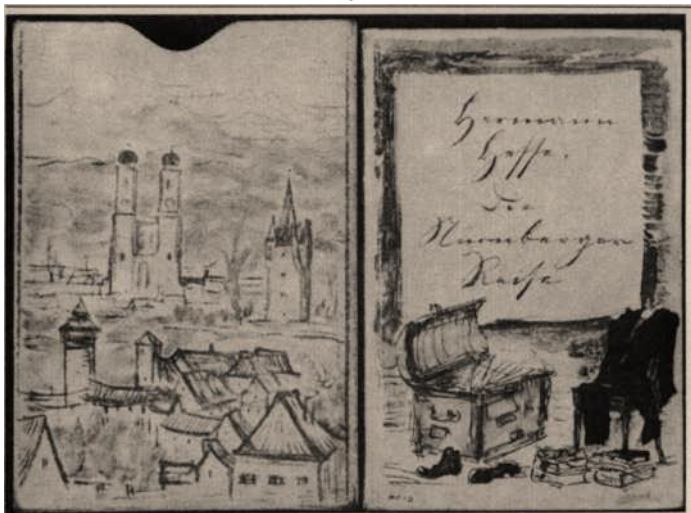 Hermann
Hesse.
Die
Nürnberger
Reise